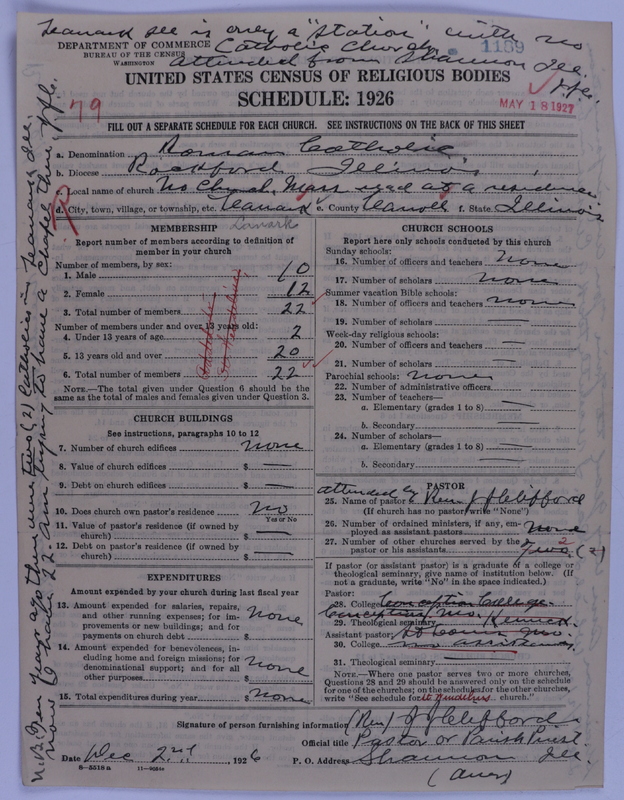 Leanark see is only a "Station" with no
DEPARTMENT OF COMMERCE
BUREAU OF THE CENSUS
WASHINGTON
Catholic Church
1159
attended from Shannon Ill.
UNITED STATES CENSUS OF RELIGIOUS BODIES
SCHEDULE: 1926
79
MAY 18 1927
FILL OUT A SEPARATE SCHEDULE FOR EACH CHURCH. SEE INSTRUCTIONS ON THE BACK OF THIS SHEET
a. Denomination Roman Catholic
b. Diocese Rockford Illinois
c. Local name of church No Church, Mass read at a residence
d. City, town, village, or township, etc. Leanark e. County Carroll f. State Illinois
Lanark
R
MEMBERSHIP
Report number of members according to definition of member in your church
Number of members, by sex:
1. Male 10
2. Female 12
3. Total number of members 22
Number of members under and over 13 years old:
4. Under 13 years of age 2
5. 13 years old and over 20
6. Total number of members 22
NOTE.—The total given under Question 6 should be the
same as the total of males and females given under Question 3.
CHURCH BUILDINGS
See instructions, paragraphs 10 to 12
7. Number of church edifices none
8. Value of church edifices $ —
9. Debt on church edifices $ —
10. Does church own pastor's residence No
Yes or No
11. Value of pastor's residence (if owned by
church) $ —
12. Debt on pastor's residence (if owned by
church) $ —
EXPENDITURES
Amount expended by church during last fiscal year
13. Amount expended for salaries, repairs,
and other running expenses; for im-
provements or new buildings; and for
payments on church debt $ none
14. Amount expended for benevolences, in-
cluding home and foreign missions; for
denominational support; and for all
other purposes $ none
15. Total expenditures during year $ none
CHURCH SCHOOLS
Report here only schools conducted by this church
Sunday schools:
16. Number of officers and teachers none
17. Number of scholars none
Summer vacation Bible schools:
18. Number of officers and teachers none
19. Number of scholars —
Week-day religious schools:
20. Number of officers and teachers —
21. Number of scholars —
Parochial schools: none
22. Number of administrative officers
23. Number of teachers—
a. Elementary (grades 1 to 8) —
b. Secondary —
24. Number of scholars—
a. Elementary (grades 1 to 8) —
b. Secondary —
PASTOR
attended by
25. Name of pastor Rev. J J Clifford
(If church has no pastor, write "None")
26. Number of ordained ministers, if any, em-
ployed as assistant pastors None
27. Number of other churches served by the
pastor or his assistants Two (2)
2
If pastor (or assistant pastor) is a graduate of a college or
theological seminary, give name of institution below. (If
not a graduate, write "No" in the space indicated.)
Pastor:
28. College Conception College
Conception, Mo.
29. Theological seminary Kenrick
Assistant pastor: St Louis Mo.
30. College no assistants
31. Theological seminary —
NOTE.—Where one pastor serves two or more churches,
Questions 28 and 29 should be answered only on the schedule
for one of the churches; on the schedules for the other churches,
write "See schedule for St Wendelin's church."
Signature of person furnishing information (Rev) J J Clifford
Official title Pastor or Parish Priest
Date Dec 2nd, 1926
P. O. Address Shannon Ill.
(over)
8—3318a
N.B. Ten years ago there were two (2) Catholics in Leanark Ill.
now we have 22. Am trying to have a Chapel there. JJC.